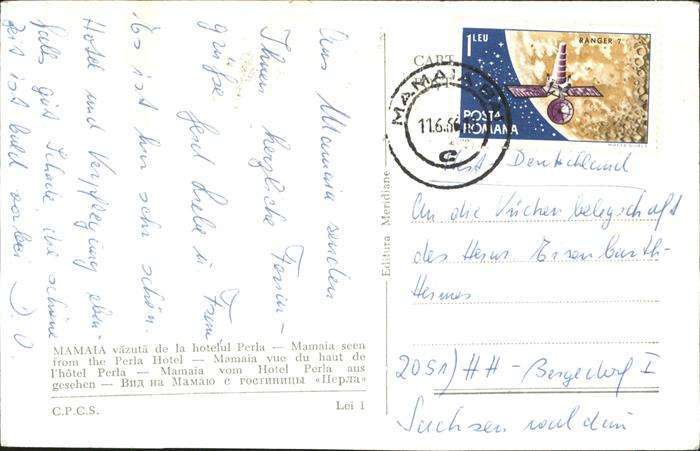 Aus Mamaia senden
Ihnen herzliche Ferien-
grüße Gerd Liebe u. Frau,
Es ist hier sehr schön.
Hotel und Verpflegung eben-
falls gut. Schade die schöne
Zeit ist bald vorbei
MAMAIA văzută de la hotelul Perla — Mamaia seen
from the Perla Hotel — Mamaia vue du haut de
l'hôtel Perla — Mamaia vom Hotel Perla aus
gesehen — Вид на Мамаю с гостиницы «Перла»
C.P.C.S. Lei 1
Editura Meridiane
CART
1 LEU
RANGER 7
POSTA
ROMANA
MAMAIA
11.6.66
West-Deutschland
An die Küchenbelegschaft
des Herrn
Hermes
2051) HH - Bergedorf I
Sachsenwald